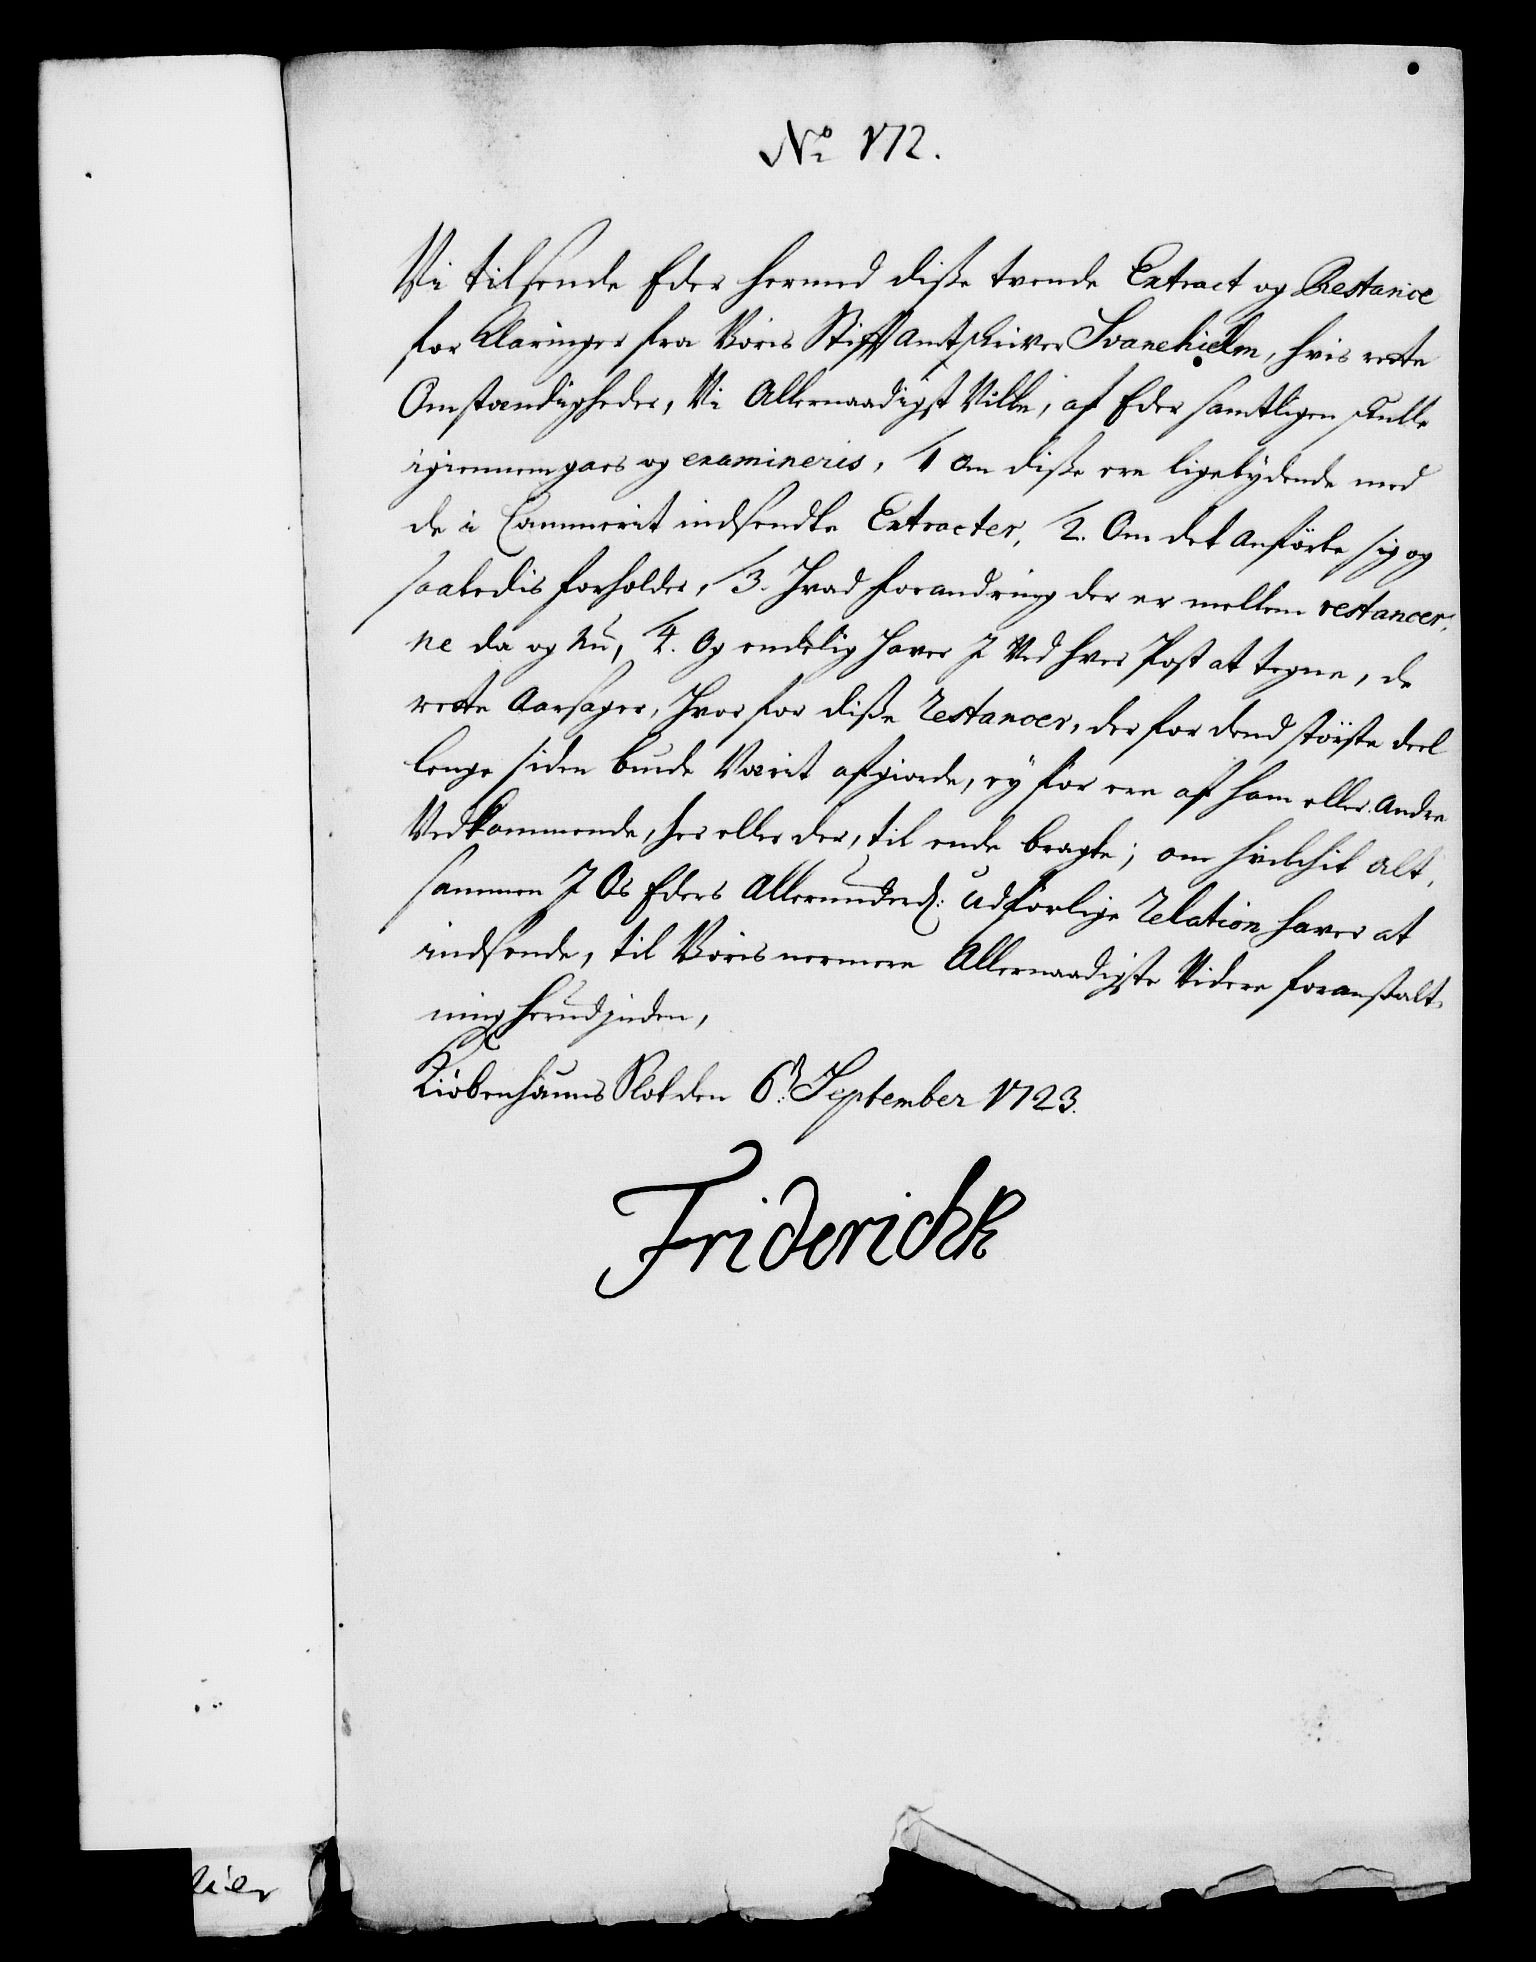 No 172.
Vi tilsende Eder hermed diße trende Extract og Restance
for Klaringer fra Voris Stiftamtskriver Svanehielm, hvis rette
Omstændigheder, Vi Allernaadigst Ville, af Eder samtligen skulle
igiennemgaes og examineris, /1 Om diße ere ligelÿdende med
de i Cammerit indsendte Extracter, /2. Om det Anförte sig og
saaledis forholder, /3. Hvad forandring der er mellem restancer,
ne da og Nu, /4. Og endelig haver I Ved hver Post at tegne, de
rette Aarsager, hvor for diße Restancer, der for dend störste deel
lenge siden burde Værit afgiorde, eÿ før ere af ham eller Andre
Vedkommende, her eller der, til ende bragte; om hvilchit alt,
sammen I Os Eders Allerunderd: Udförlige Relation haver at
indsende, til Voris nermere Allernaadigste Videre foranstalt,
ning herudjnden,
Kiöbenhauns Slot den 6t: September 1723.
Friderich R
lier